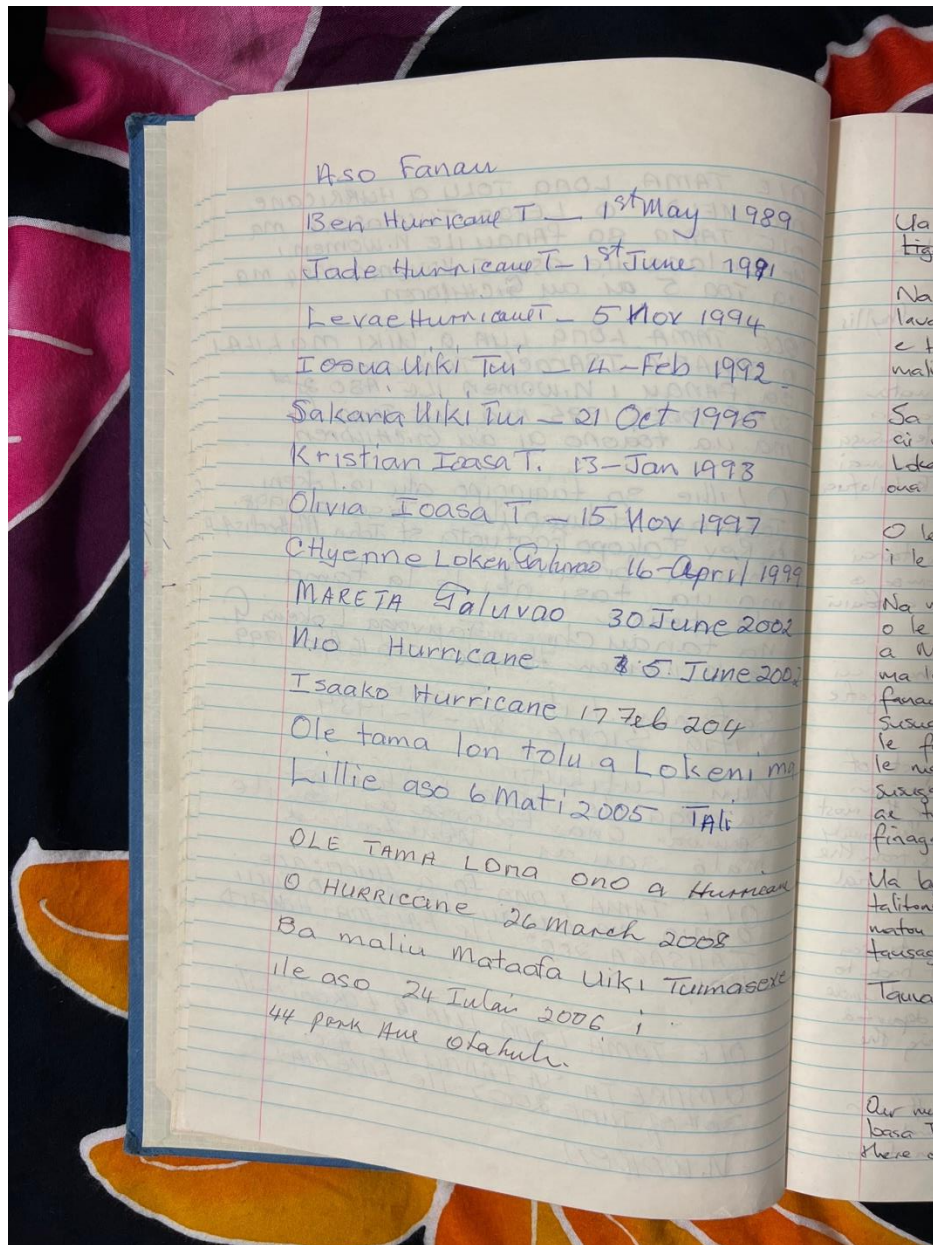 Aso Fanau
Ben Hurricane T — 1st May 1989
Jade Hurricane T — 1st June 1991
Levae Hurricane T — 5 Nov 1994
Ioasa Uiki Tui — 4 - Feb 1992
Sakaria Uiki Tui — 21 Oct 1995
Kristian Ioasa T. 13 - Jan 1993
Olivia Ioasa T — 15 Nov 1997
CHyenne Loken Galuvao 16 - April 1999
MARETA Galuvao 30 June 2002
Nio Hurricane 5. June 2002
Isaako Hurricane 17 Feb 204
Ole tama lon tolu a Lokeni ma
Lillie aso 6 Mati 2005 TAli
OLE TAMA LONA ono a Hurrican
O HURRICANE 26 March 2008
Sa maliu Mataafa Uiki Tuimasexe
ile aso 24 Iulai 2006 i
44 park Ave Otahuh.
Ua
Na
lava
e t
Sa
Loke
ona
O le
i le
Na
o le
a
ma
fanau
Susug
le f
le
ae
finag
Ua
matou
tausag
Our
basa
there